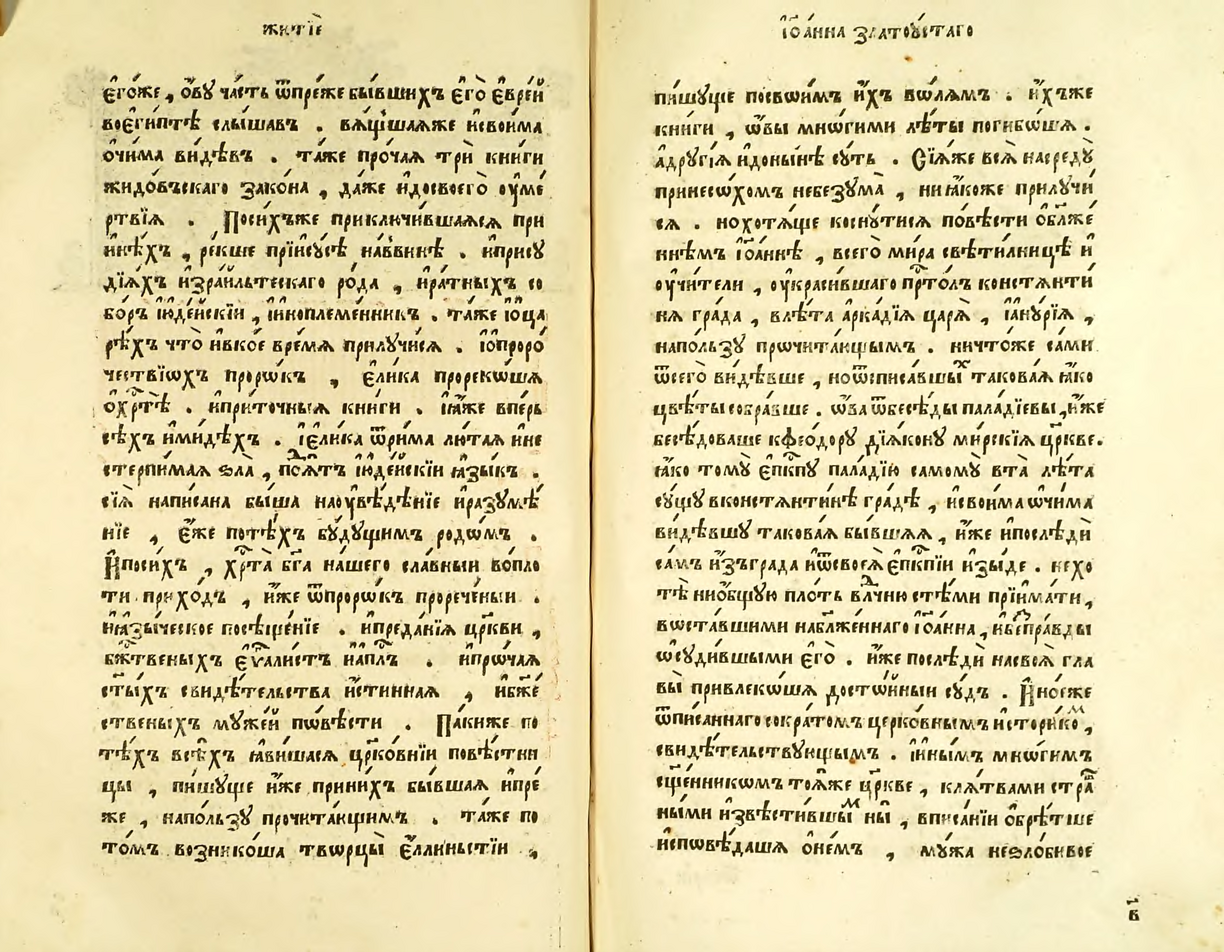 житїѐ
є҆го́же , о҆́вꙋ ча́сть ѿпре́же бы́вшихъ є҆го̀ є҆вре́й
воє҆ги́птѣ слы́шавъ . вѧ́щшаѧже и҆свои́ма
ѻ҆чи́ма ви́дѣвъ . та́же про́чаѧ трѝ кни́ги
жидо́въскаго зако́на , да́же и҆досвоего̀ ᲂу҆ме́
ртвїѧ . Посиⷯъже приключи́вшаѧсѧ при
и҆нѣ́хъ , ре́кше прїисꙋ́сѣ наѵ́винѣ . и҆присꙋ
дїѧ́хъ и҆зраи́льтескаго ро́да , и҆ра́тныхъ со
бо́ръ і҆ꙋде́йскїи , і҆и҆ноплеме́нникъ . та́же і҆ѻ҆ца
рѣ́хъ что̀ и҆вко́е вре́мѧ прилꙋчи́сѧ . і҆ѻ҆проро́
чествїѡхъ прⷪ҇ро́къ , є҆ли́ка прореко́шѧ
ѻ҆хрⷭ҇тѣ̀ . и҆при́точныѧ кни́ги . ꙗ҆̀же впе́рь
сѣ́хъ и҆миди́хъ . і҆є҆ли́ка ѿри́ма лю́таѧ и҆не
стерпи́маѧ ѕла̀ , пострада̀ і҆ꙋде́йскїи ꙗ҆зы́къ .
сїѧ̀ напи́сана бы́ша наᲂу҆вѣ́дѣнїе и҆разꙋмѣ́
нїе , є҆́же потѣ́хъ бꙋ́дꙋщимъ родо́мъ .
И҆поси́хъ , хрⷭ҇та̀ бг҃а на́шего сла́вныи вопло
ти прихо́дъ , и҆́же ѿпроро́къ прорече́ныи .
и҆ꙗ҆зы́ческое посѣще́нїе . и҆преда́нїѧ цр҃кви ,
бж҃твеныхъ є҆ѵⷢ҇али́стъ и҆апⷭ҇лъ . и҆про́чаѧ
ст҃ы́хъ свидѣ́тельства и҆́стиннаѧ , и҆бж҃е́
ственыхъ мꙋже́й по́вѣсти . Па́киже по
тѣ́хъ всѣ́хъ ꙗ҆ви́шасѧ цр҃ко́внїи повѣ́стни
цы , пи́шꙋще и҆́же прини́хъ бы́вшаѧ и҆пре́
же , напо́льзꙋ прочита́ющимъ . та́же по
то́мъ возни́коша творцы̀ є҆́ллиньстїи ,
і҆ѻа́нна златоꙋ́стаго
пи́шꙋще посвои́мъ и҆́хъ во́лѧмъ . и҆́хъже
кни́ги , ѡ҆́вы мно́гими лѣ́ты поги́боша .
а҆дрꙋгі́ѧ и҆доны́нѣ сꙋ́ть . Сїѧ́же всѧ̀ насредꙋ̀
принесо́хомъ небезꙋма̀ , ниꙗ҆́коже прилꙋчи́
сѧ . нохотѧ́ще коснꙋ́тисѧ по́вѣсти ѻ҆блаже́
ннѣмъ і҆ѻа́ннѣ , всего̀ ми́ра свѣти́лницѣ и҆
ᲂу҆чи́тели , ᲂу҆краси́вшаго прⷭ҇то́лъ констѧнти́
нѧ гра́да , влѣ́та а҆рка́дїѧ царѧ̀ , і҆а҆нꙋ́рїѧ ,
напо́льзꙋ прочита́ющымъ . ничто́же са́ми
ѿсего̀ ви́дѣвше , ноѿсписа́вшыⷯ такова́ѧ ꙗ҆́ко
цвѣ́ты собра́вше . ѻ҆́ва ѿбесѣ́ды пала́дїевы , и҆́же
бесѣ́доваше кѳео́дорꙋ дїѧ́конꙋ ми́рскїѧ цр҃кве .
ꙗ҆́ко томꙋ̀ є҆пкⷭ҇пꙋ пала́дїю самомꙋ̀ вта̀ лѣ́та
сꙋ́щꙋ вконстѧнти́нѣ гра́дѣ , и҆свои́ма ѻ҆чи́ма
ви́дѣвшꙋ такова́ѧ бы́вшаѧ , и҆́же и҆послѣдѝ
са́мъ и҆зъгра́да и҆ѿсвоеѧ̀ є҆пкⷭ҇пїи и҆зы́де . нехо
тѣ̀ нио҆бщꙋю пло́ть влⷣчню стѣ́ми прїима́ти ,
воста́вшими наблаже́ннаго і҆ѻа́нна , и҆беспра́вды
ѡ҆сꙋди́вшыми є҆го̀ . и҆́же послѣдѝ насвоѧ̀ гла
вы̀ привлеко́ша досто́йныи сꙋ́дъ . И҆но́еже
ѿпи́саннаго сокра́томъ церко́внымъ и҆сто́рикоⷨ ,
свидѣ́тельствꙋющымъ . і҆и҆ны́мъ мно́гимъ
сщ҃е́нникомъ тоѧ́же цр҃кве , клѧ́твами стра́
ными и҆звѣсти́вшыⷨ ны̀ , вписа́нїи ѻ҆брѣ́тше
и҆сповѣ́дашѧ ѻ҆не́мъ , мꙋ́жа неѕло́бивое
в҃